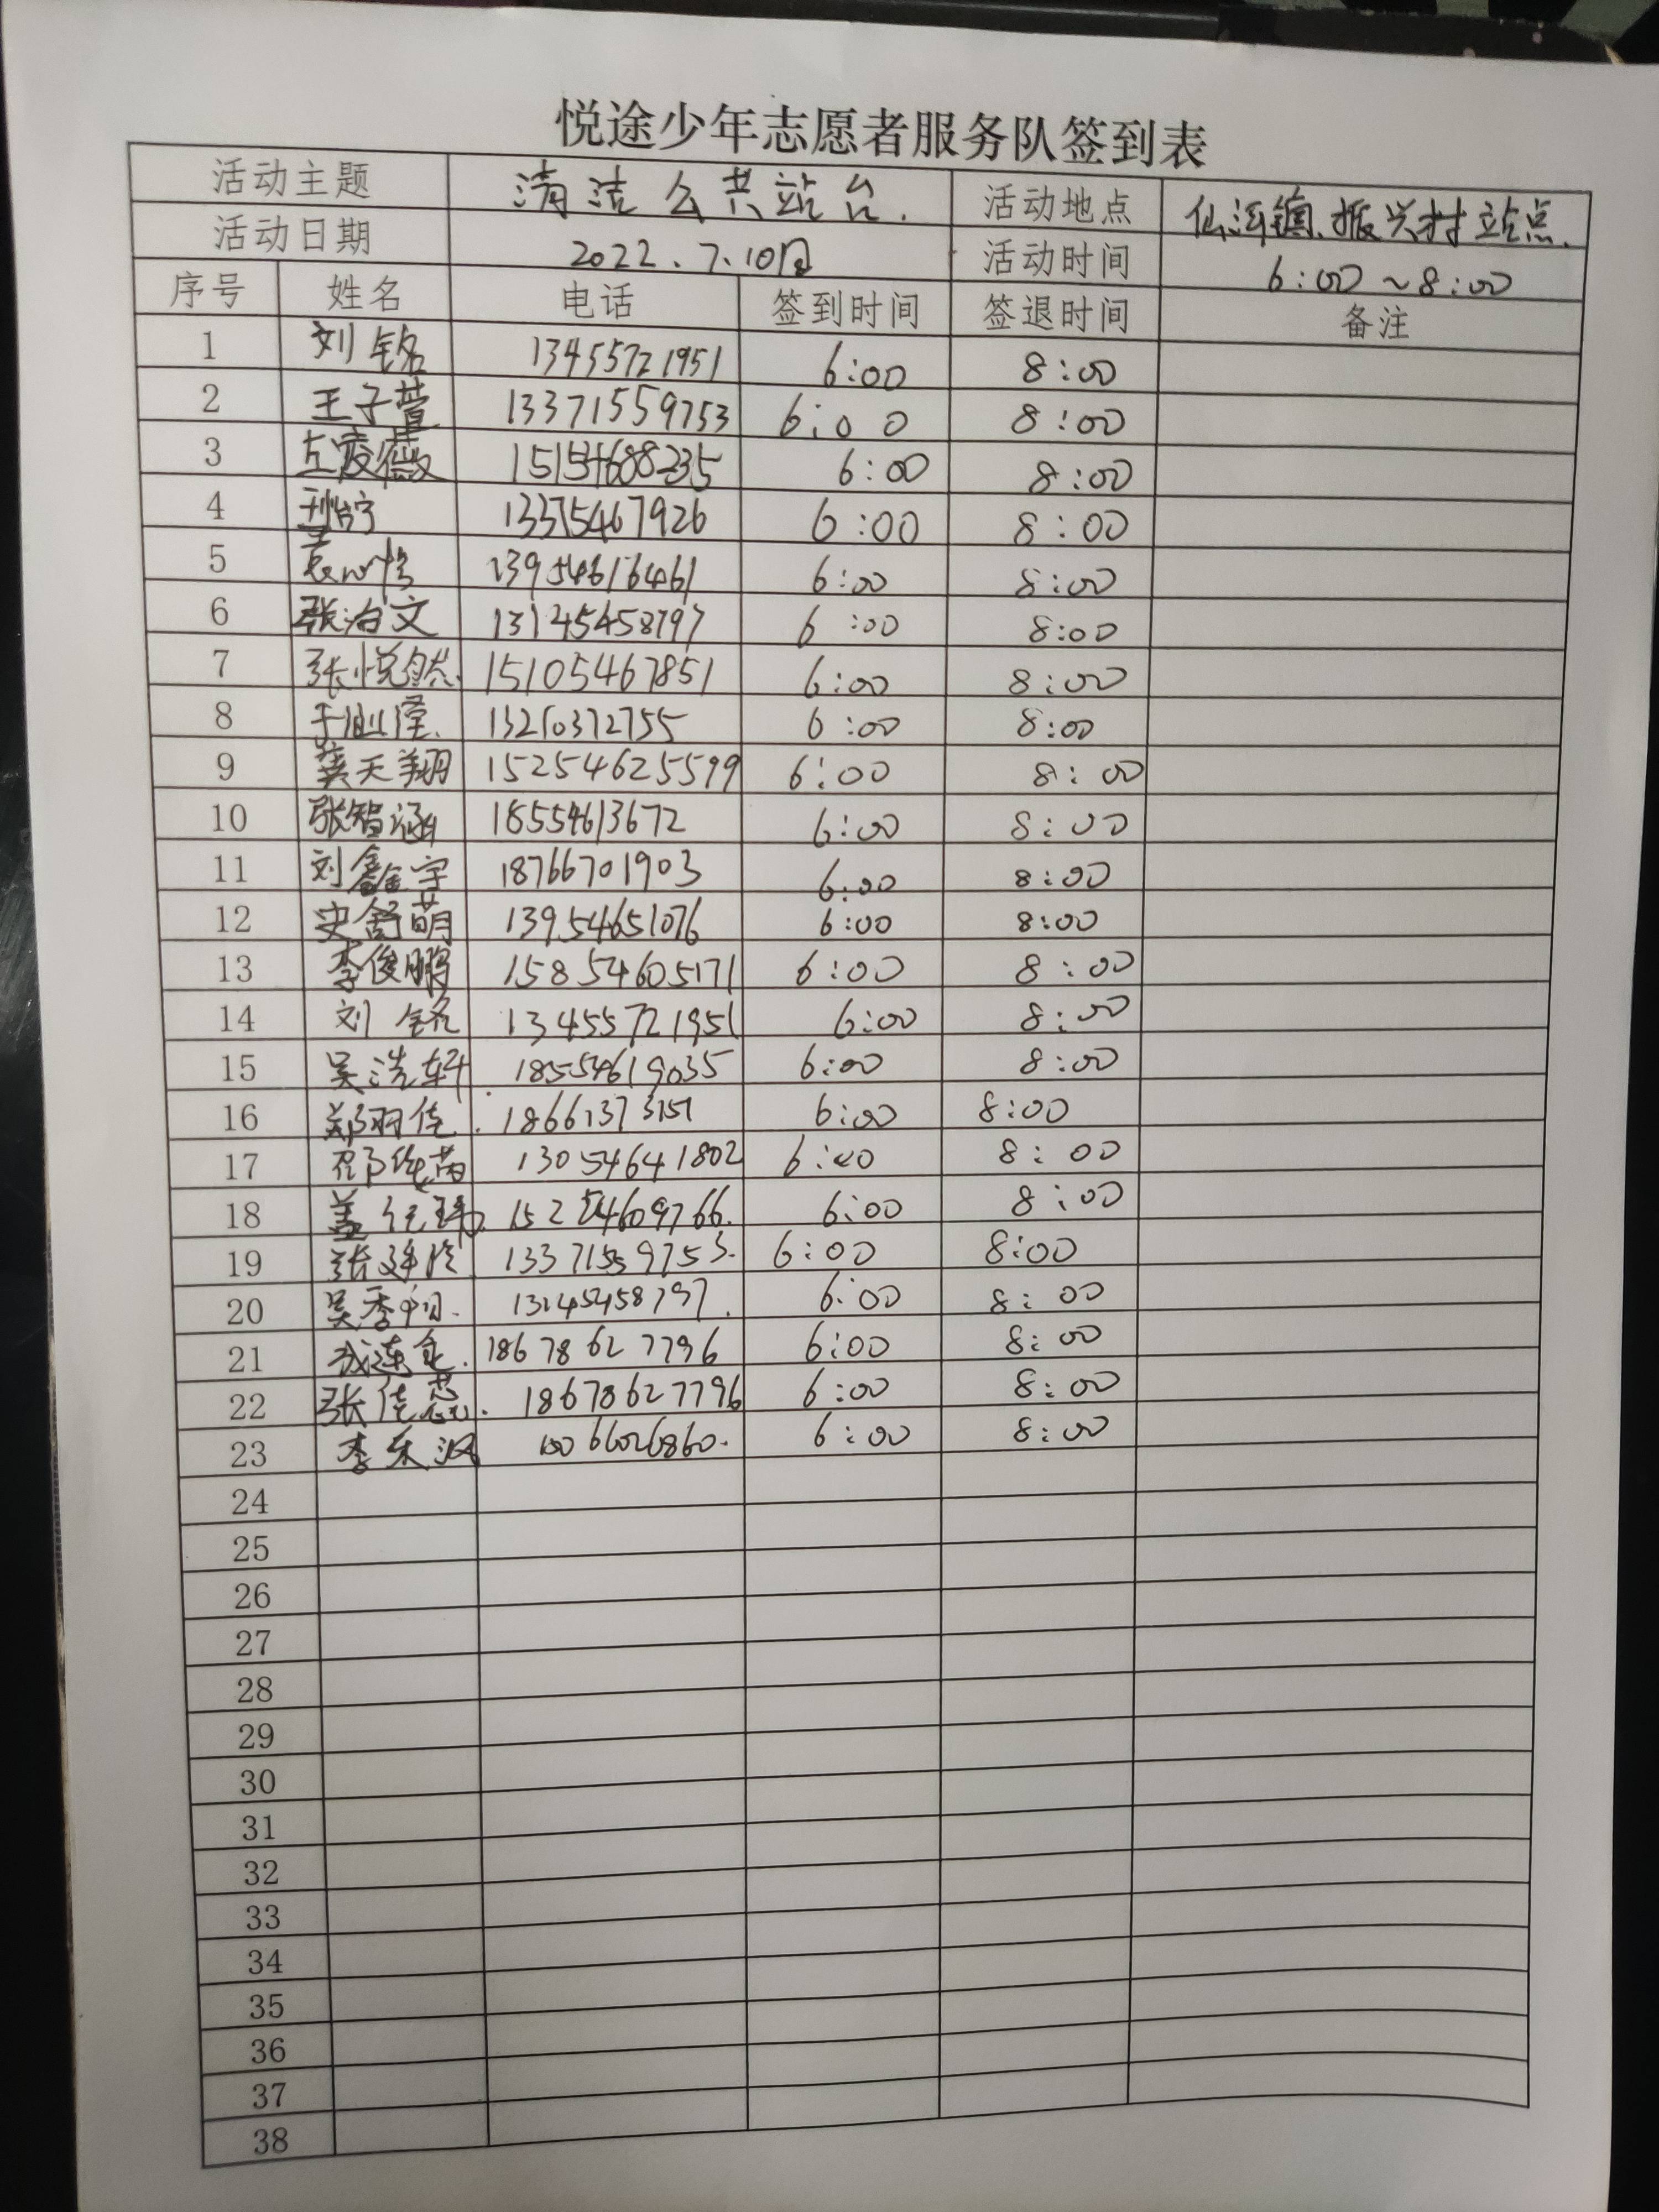 悦途少年志愿者服务队签到表
活动主题 清洁公共站台. 活动地点 仙河镇.振兴村站点.
活动日期 2022.7.10日 活动时间 6:00~8:00
序号 姓名 电话 签到时间 签退时间 备注
1 刘铭 13455721951 6:00 8:00
2 王子萱 13371559753 6:00 8:00
3 15154688235 6:00 8:00
4 13375467926 6:00 8:00
5 13954616461 6:00 8:00
6 张治文 13145458797 6:00 8:00
7 张悦然. 15105467851 6:00 8:00
8 13210372755 6:00 8:00
9 龚天翔 15254625599 6:00 8:00
10 张智涵 18554613672 6:00 8:00
11 刘鑫宇 18766701903 6:00 8:00
12 史舒萌 13954651076 6:00 8:00
13 李俊鹏 15854605171 6:00 8:00
14 刘铭 13455721951 6:00 8:00
15 吴浩轩 18554619035 6:00 8:00
16 郑羽佳. 6:00 8:00
17 13054641802 6:00 8:00
18 盖 15254609766. 6:00 8:00
19 张 13371559753. 6:00 8:00
20 吴季 6:00 8:00
21 18678627796 6:00 8:00
22 张佳蕊. 18678627796 6:00 8:00
23 李东 6:00 8:00
24
25
26
27
28
29
30
31
32
33
34
35
36
37
38